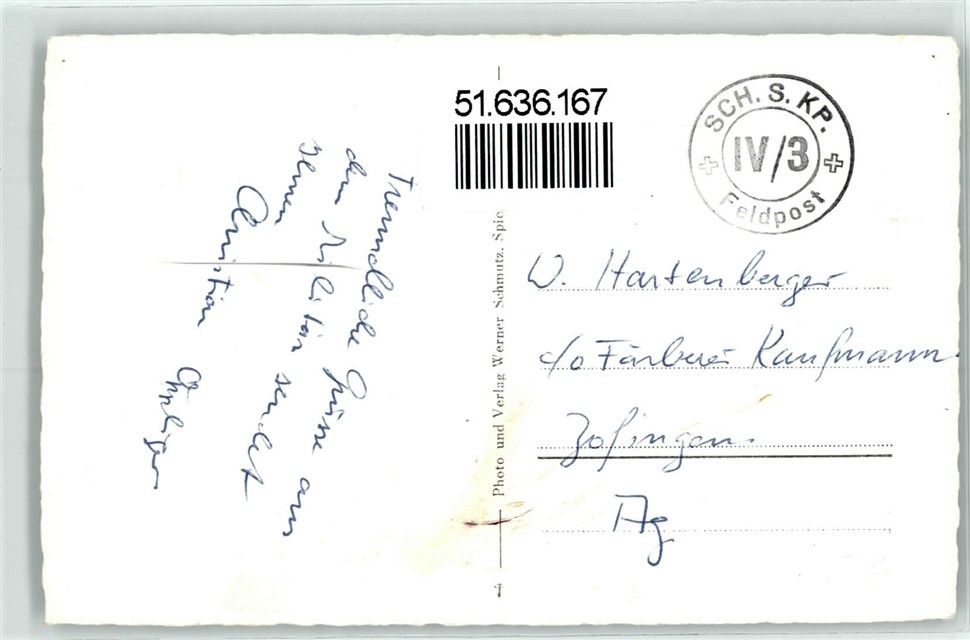 Freundliche Grüsse aus
dem Militär sendet
Ihnen
Christian
51.636.167
Photo und Verlag Werner Schmutz, Spie
SCH. S. KP.
IV/3
Feldpost
W. Hartenberger
c/o Färberei Kaufmann
Zofingen.
Ag